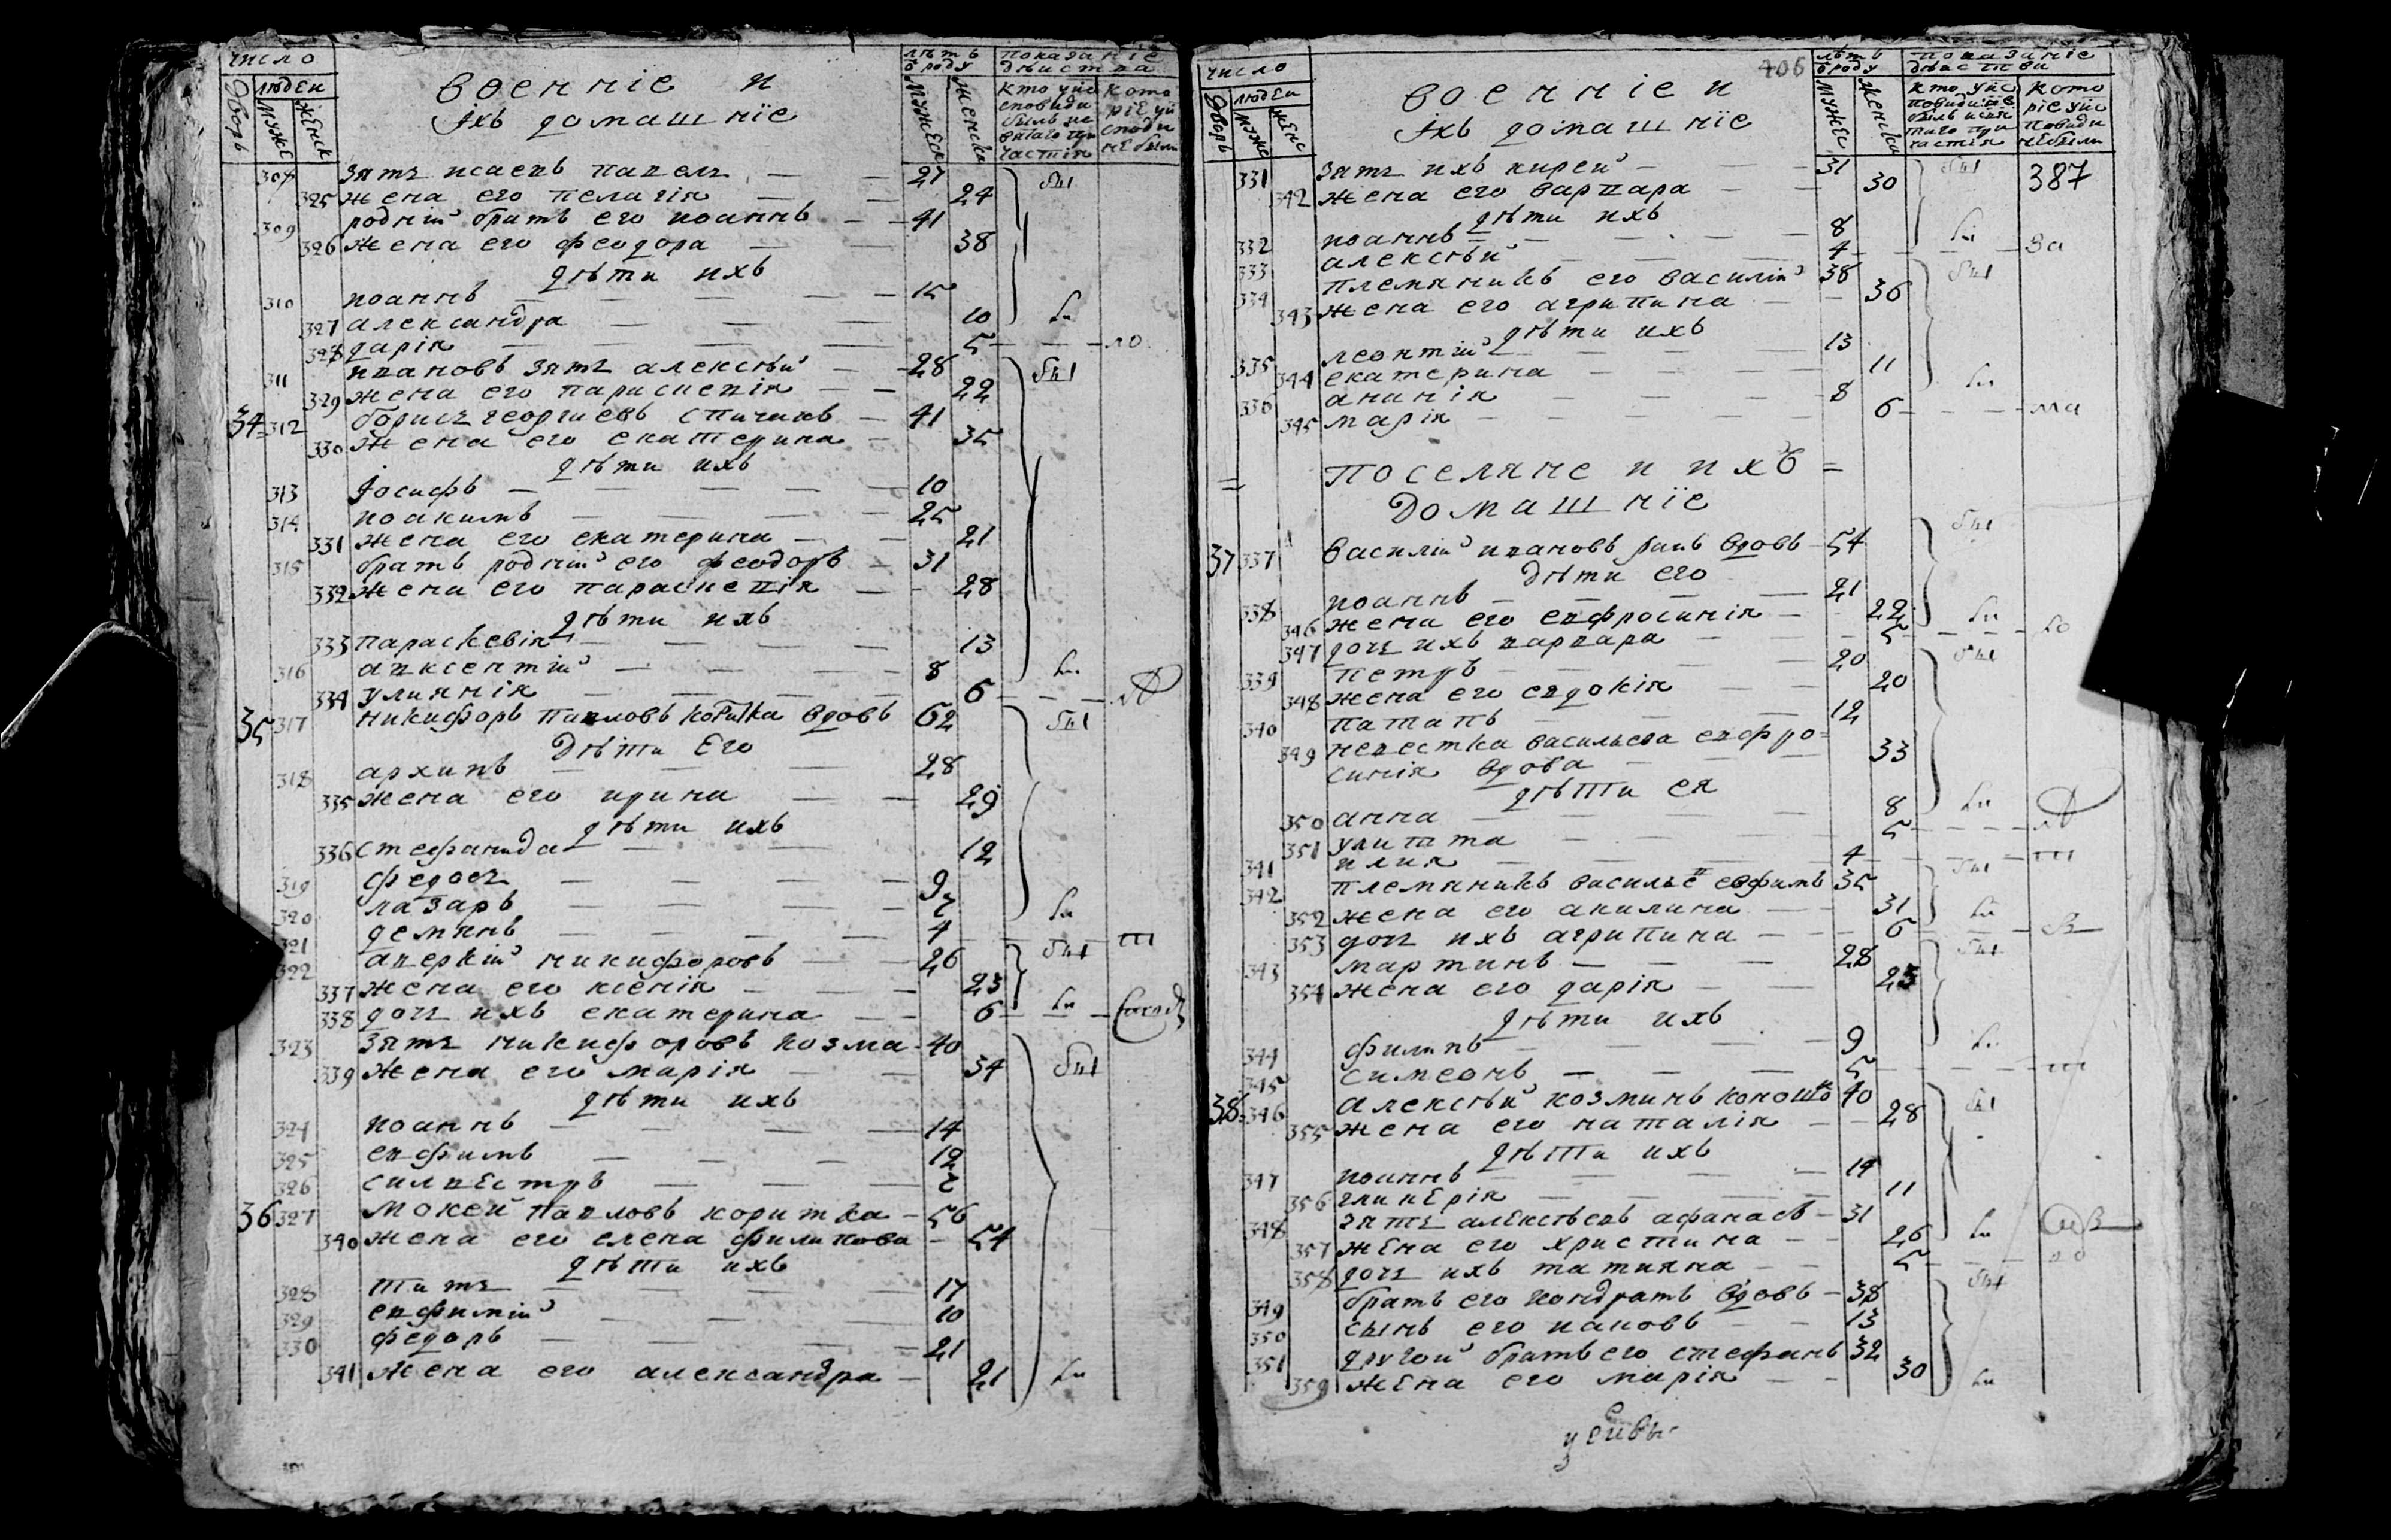 число
людеи
дворъ
мужс
женск
военніе и
іхъ домашніе
лѣтъ
ѿ роду
мужеск
женска
показаніе
дѣиства
кото
ріе уи
308
зять исаевъ павелъ — — 27
325 жена его пелагія — 24
309 родній братъ его иоаннъ — — 41
326 жена его феодора — 38
дѣти ихъ
310 иоаннъ — — — — 15
327 александра — — — 10
328 дарія — — — 5 — —
311 ивановъ зять алексѣй — 28
329 жена его парискевія — — 22
34 312 борисъ георгиевъ — 41
330 жена его екатерина — 35
дѣти ихъ
313 іосифъ — — — — 10
314 иоакимъ — — — — 25
331 жена его екатерина — — 21
315 братъ родній его феодоръ — 31
332 жена его параскевія — — 28
дѣти ихъ
333 параскевія — — — 13
316 авксентій — — — 8
334 улиянія — — — 6 — —
35 317 никифоръ павловъ вдовъ 62
дѣти его
318 архипъ — — — 28
335 жена его ирина — — 29
дѣти ихъ
336 стефанида — — 12
319 федосъ — — — — 9
320 лазаръ — — — — 7
321 демянъ — — — — 4
322 аверкій никифоровъ — — 26
337 жена его ксенія — — — 23
338 дочъ ихъ екатерина — — 6 — —
323 зять никифоровъ козма — 40
339 жена его марія — — 34
дѣти ихъ
324 иоаннъ — — — — 14
325 евфимъ — — — 12
326 силвестръ — — — 7
36 327 мокей павловъ коритка — 56
340 жена его елена филипова — 54
дѣти ихъ
328 титъ — — — — 17
329 евфимій — — — 10
330 федоръ — — — — 21
341 жена его александра — 21
число
людеи
дворъ
мужс
женс
военніе и
іхъ домашніе
406
лѣтъ
ѿ роду
мужес
женска
показаніе
дѣиства
кото
ріе уис
повиди
387
331 зять ихъ кирей — — 31
342 жена его варвара — — 30
дѣти ихъ
332 иоаннъ — — — — 8
333 алексѣй — — — 4 — —
334 племяникъ его василій 38
343 жена его агрипина — — 36
дѣти ихъ
335 леонтій — — — 13
344 екатерина — — — 11
336 ананія — — — 8
345 марія — — — 6 — —
= поселяне и ихъ =
домашніе
37 337 василій ивановъ вдовъ 54
дѣти его
338 иоаннъ — — — — 21
346 жена его евфросинія — 22
347 дочъ ихъ варвара — — 5 — —
339 петръ — — — 20
348 жена его евдокія — — 20
340 патапъ — — — 12
349 невестка васильева евфро=
синія вдова — — 33
дѣти ея
350 анна — — — — 8
351 улитта — — — 5 — —
341 илия — — — — 4 — —
342 племяникъ василье евфимъ 35
352 жена его акилина — — 31
353 дочъ ихъ агрипина — — 6 — —
343 мартинъ — — — 28
354 жена его дарія — — 25
дѣти ихъ
344 филипъ — — — — 9
345 симеонъ — — — — 5 — —
38 346 алексѣй козминъ 40
355 жена его наталія — — 28
дѣти ихъ
347 иоаннъ — — — — 14
356 гликерія — — — 11
348 зять алексѣевъ афанасъ — 31
357 жена его христина — — 26
358 дочъ ихъ татияна — — 5 — —
349 братъ его кондратъ вдовъ — 38
350 сынъ его иаковъ — — 13
351 другой братъ его стефанъ 32
359 жена его марія — — 30